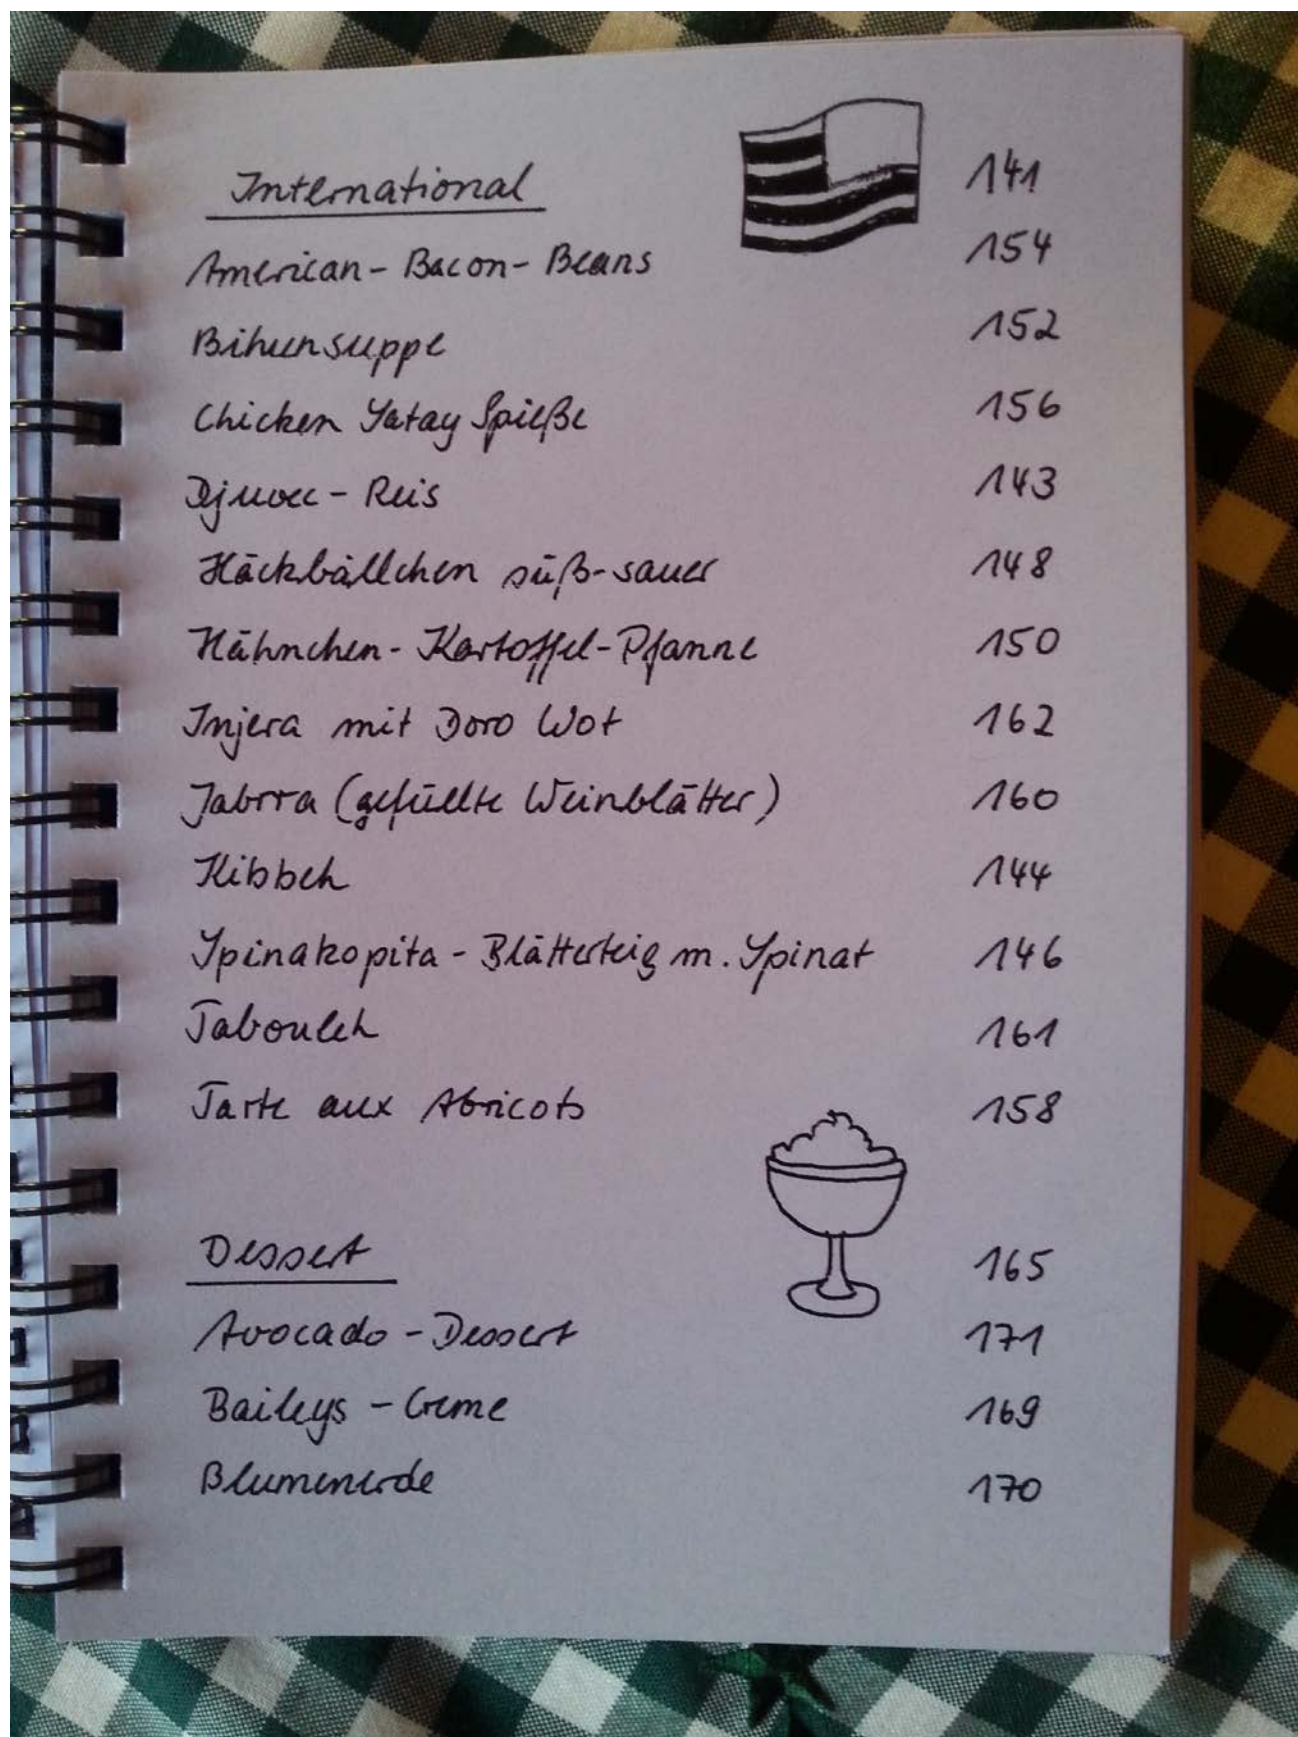 International 141
American-Bacon-Beans 154
Bihunsuppe 152
Chicken Satay Spieße 156
Djuvec-Reis 143
Häckbällchen süß-sauer 148
Hähnchen-Kartoffel-Pfanne 150
Injera mit Doro Wot 162
Jabrra (gefüllte Weinblätter) 160
Kibbeh 144
Spinakopita-Blätterteig m. Spinat 146
Tabouleh 161
Tarte aux Abricots 158
Dessert 165
Avocado-Dessert 171
Baileys-Creme 169
Blumenerde 170